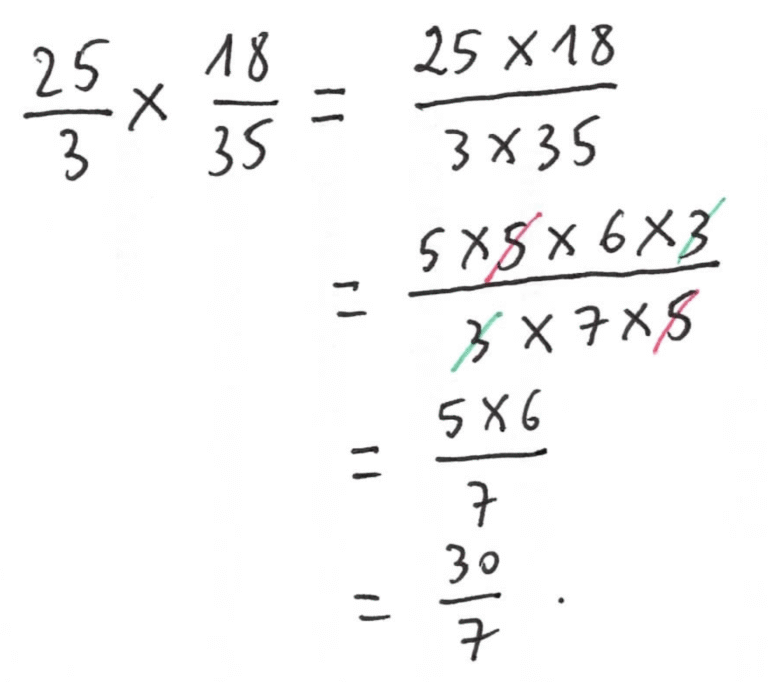 25/3 × 18/35 = 25 × 18 / 3 × 35
= 5 × 5 × 6 × 3 / 3 × 7 × 5
= 5 × 6 / 7
= 30/7 .